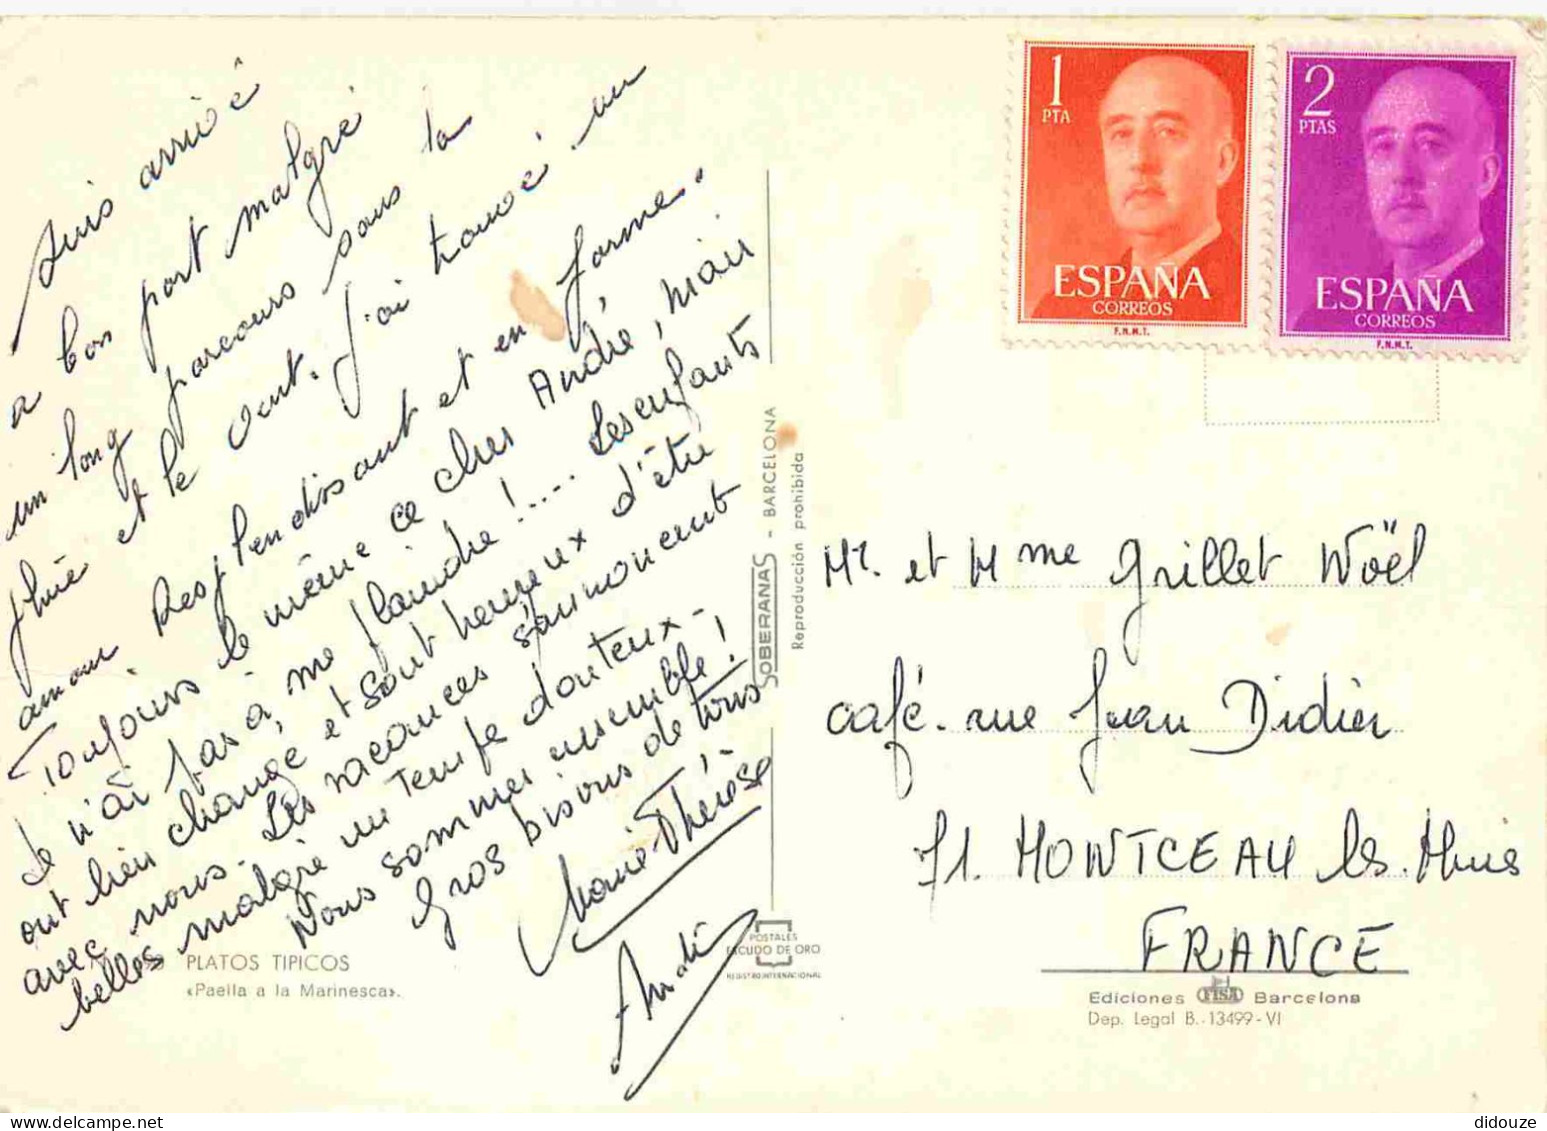 Suis arrivé
a bon port malgré
un long parcours sous la
pluie et le vent. J'ai trouvé un
amour resplendissant et en forme.
Toujours le même ce cher André, mais
je n'ai pas à me plaindre !.... Les enfants
ont bien changé et sont heureux d'être
avec nous. Les vacances s'annoncent
belles malgré un temps douteux -
Nous sommes ensemble !
Gros bisous de tous
Marie Thérèse
André
PLATOS TIPICOS
«Paella a la Marinesca».
SOBERANAS - BARCELONA
Reproducción prohibida
POSTALES
ESCUDO DE ORO
REGISTRO INTERNACIONAL
1
PTA
ESPAÑA
CORREOS
F.N.M.T.
2
PTAS
ESPAÑA
CORREOS
F.N.M.T.
Mr. et Mme Grillet Noël
café. rue Jean Didier
71. MONTCEAU les. Mines
FRANCE
Ediciones FISA Barcelona
Dep. Legal B. - 13499 - VI
didouze